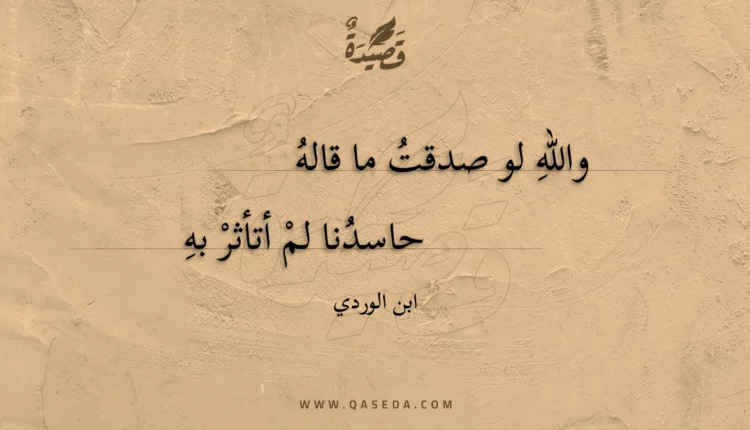 قَصِيْدَةٌ
واللهِ لو صدقتُ ما قالهُ
حاسدُنا لمْ أتأثرْ بهِ
ابن الوردي
WWW.QASEDA.COM